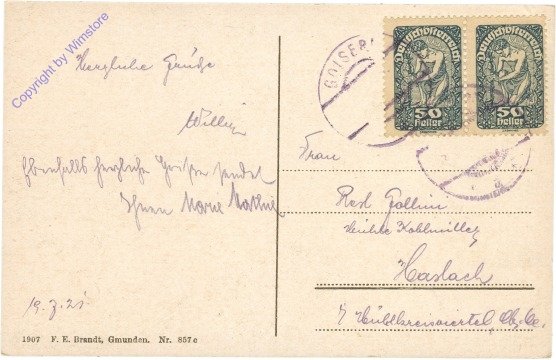 Copyright by Wimstore
Herzliche Grüße
Willi
Ebenfalls herzliche Grüße sendet
Ihnen Marie
19.7.21
1907 F. E. Brandt, Gmunden. Nr. 857 c
GOISER
Deutschösterreich
50
Heller
Deutschösterreich
50
Heller
Frau
Resl
Haslach
Mühlkreisviertel, Ob. Oe.